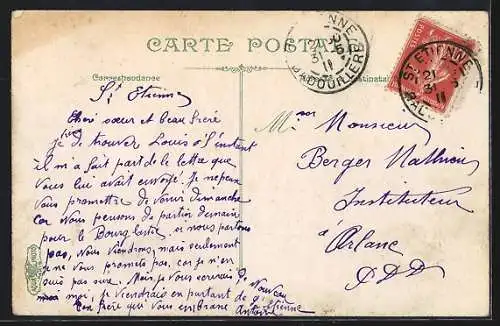 CARTE POSTALE
Correspondance
St Etienne
Chère sœur et beau frère
je viens de trouver Louis à l'instant
il m'a fait part de la lettre que
vous lui avait envoyé. Je ne peux
vous promettre de venir dimanche
car nous pensons de partir demain
pour le Bourg Lastic si nous partons
pas, nous viendrons, mais seulement
je ne vous promets pas, car je n'en
suis pas sûre. Mais je vous écrirais de nouveau
moi, je viendrais en partant de St Etienne
Ton frère qui vous embrasse Antoine
ST ETIENNE
21
31
11
Monsieur
Berger Mathieu
Instituteur
à
Arlanc
P.D.D